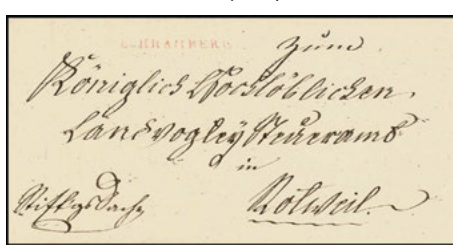 SCHRAMBERG
Zum
Königlich Hochlöblichen
Landvogtey Steueramt
in
Rotweil.